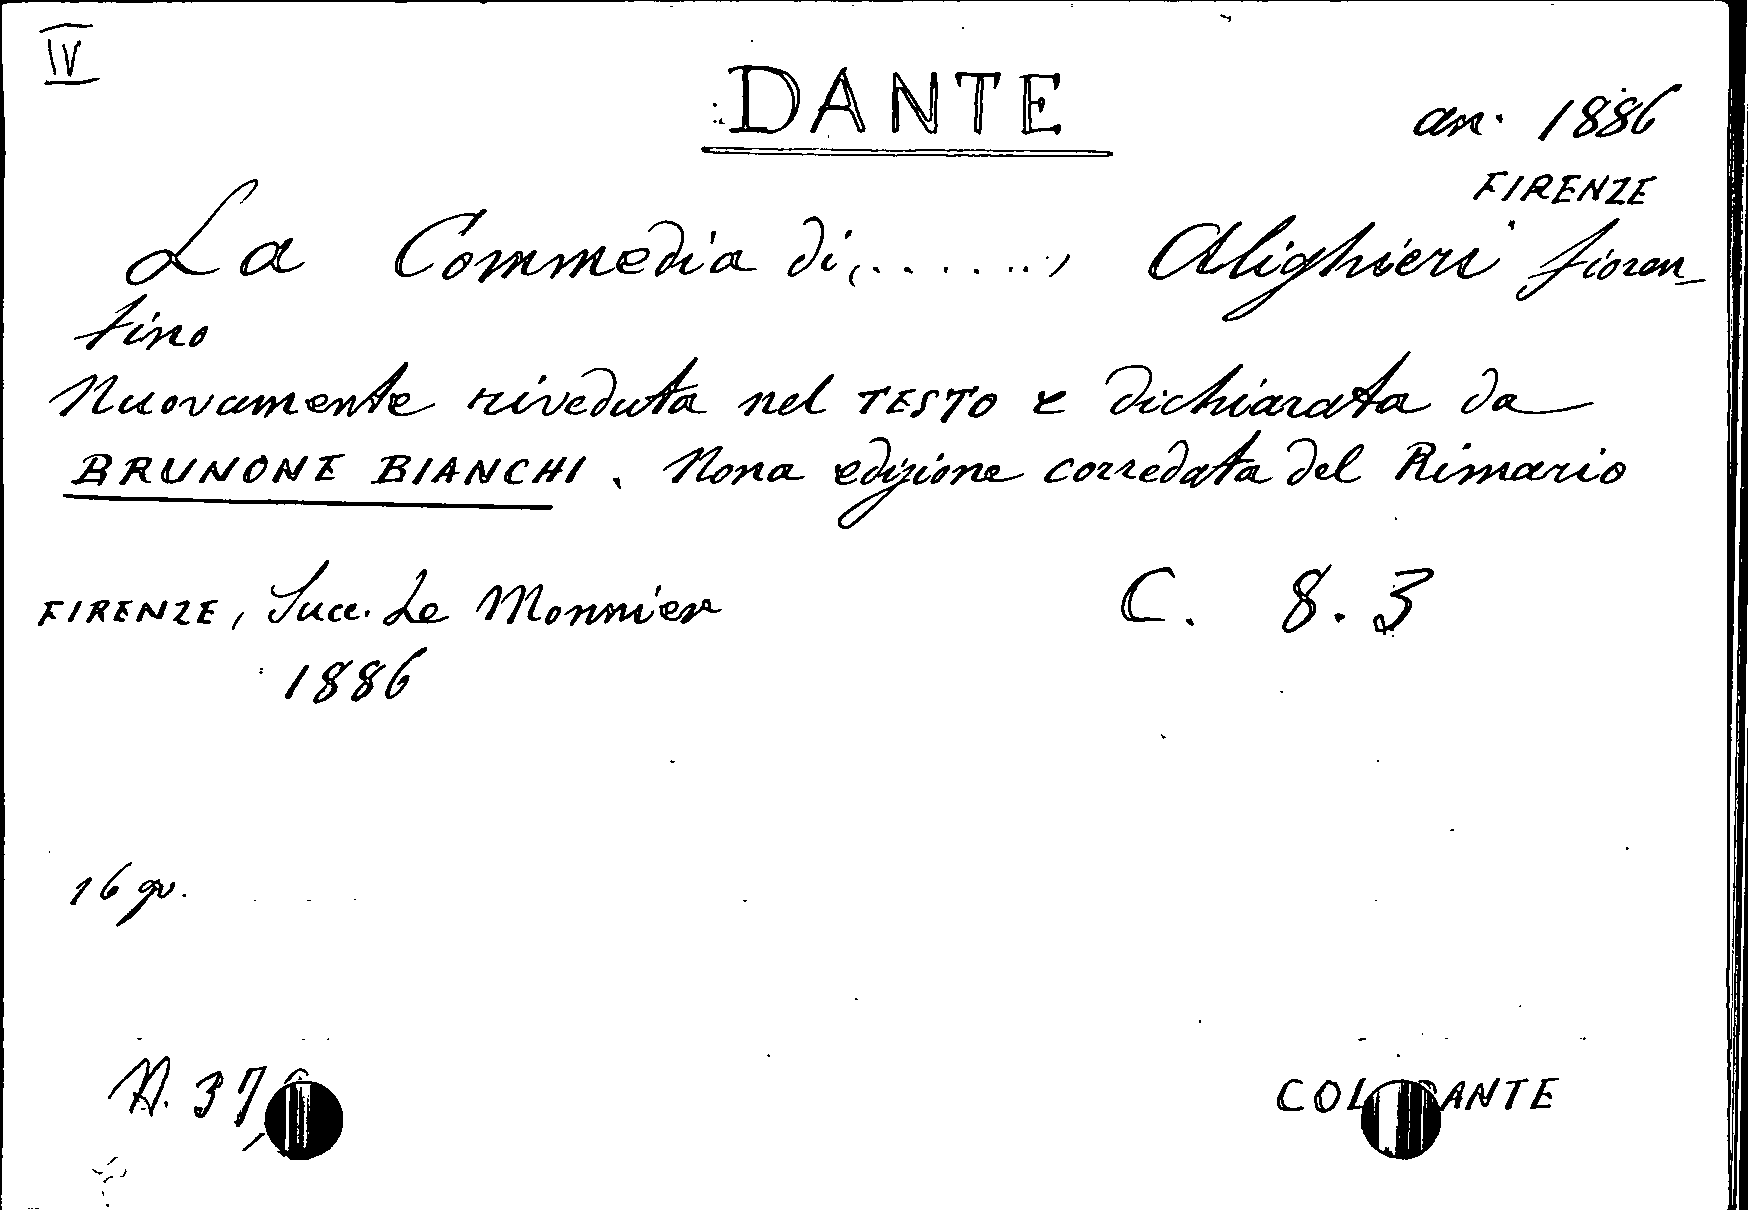 IV
DANTE
an. 1886
FIRENZE
La Commedia di, ......, Alighieri fioren-
tino
Nuovamente riveduta nel TESTO e dichiarata da
BRUNONE BIANCHI. Nona edizione corredata del Rimario
FIRENZE, Succ. Le Monnier
C. 8.3
1886
16 gv.
N. 37,
COL DANTE